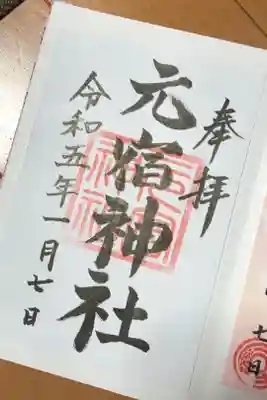 奉拝
元宿神社
令和五年一月七日
七日